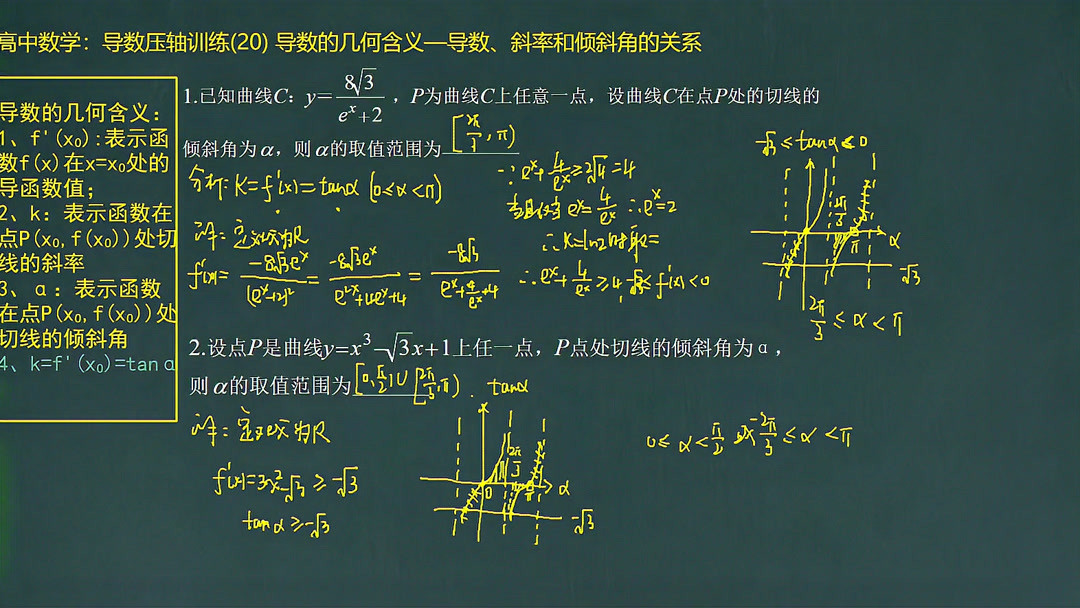 高中数学：导数压轴训练(20) 导数的几何含义—导数、斜率和倾斜角的关系
导数的几何含义：
1、f'(x₀):表示函
数f(x)在x=x₀处的
导函数值；
2、k：表示函数在
点P(x₀,f(x₀))处切
线的斜率
3、α：表示函数
在点P(x₀,f(x₀))处
切线的倾斜角
4、k=f'(x₀)=tanα
1.已知曲线C：y=8√3/(eˣ+2)，P为曲线C上任意一点，设曲线C在点P处的切线的
倾斜角为α，则α的取值范围为[2π/3, π)
分析: K=f'(x)=tanα (0≤α<π)
详: 定义域为R
f'(x)= -8√3eˣ/(eˣ+2)² = -8√3eˣ/(e²ˣ+4eˣ+4) = -8√3/(eˣ+4/eˣ+4)
∵ eˣ+4/eˣ≥2√4=4
当且仅当 eˣ=4/eˣ ∴eˣ=2
∴eˣ+4/eˣ≥4, -√3≤f'(x)<0
-√3≤tanα<0
α
π
-√3
2π/3≤α<π
2.设点P是曲线y=x³-√3x+1上任一点，P点处切线的倾斜角为α，
则α的取值范围为[0,π/2)∪[2π/3,π).
详: 定义域为R
f'(x)=3x²-√3≥-√3
tanα≥-√3
tanα
2π/3
0
α
-√3
0≤α<π/2 或 2π/3≤α<π